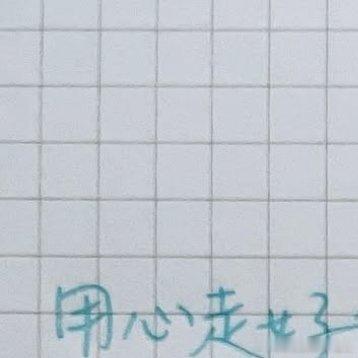 用心走好